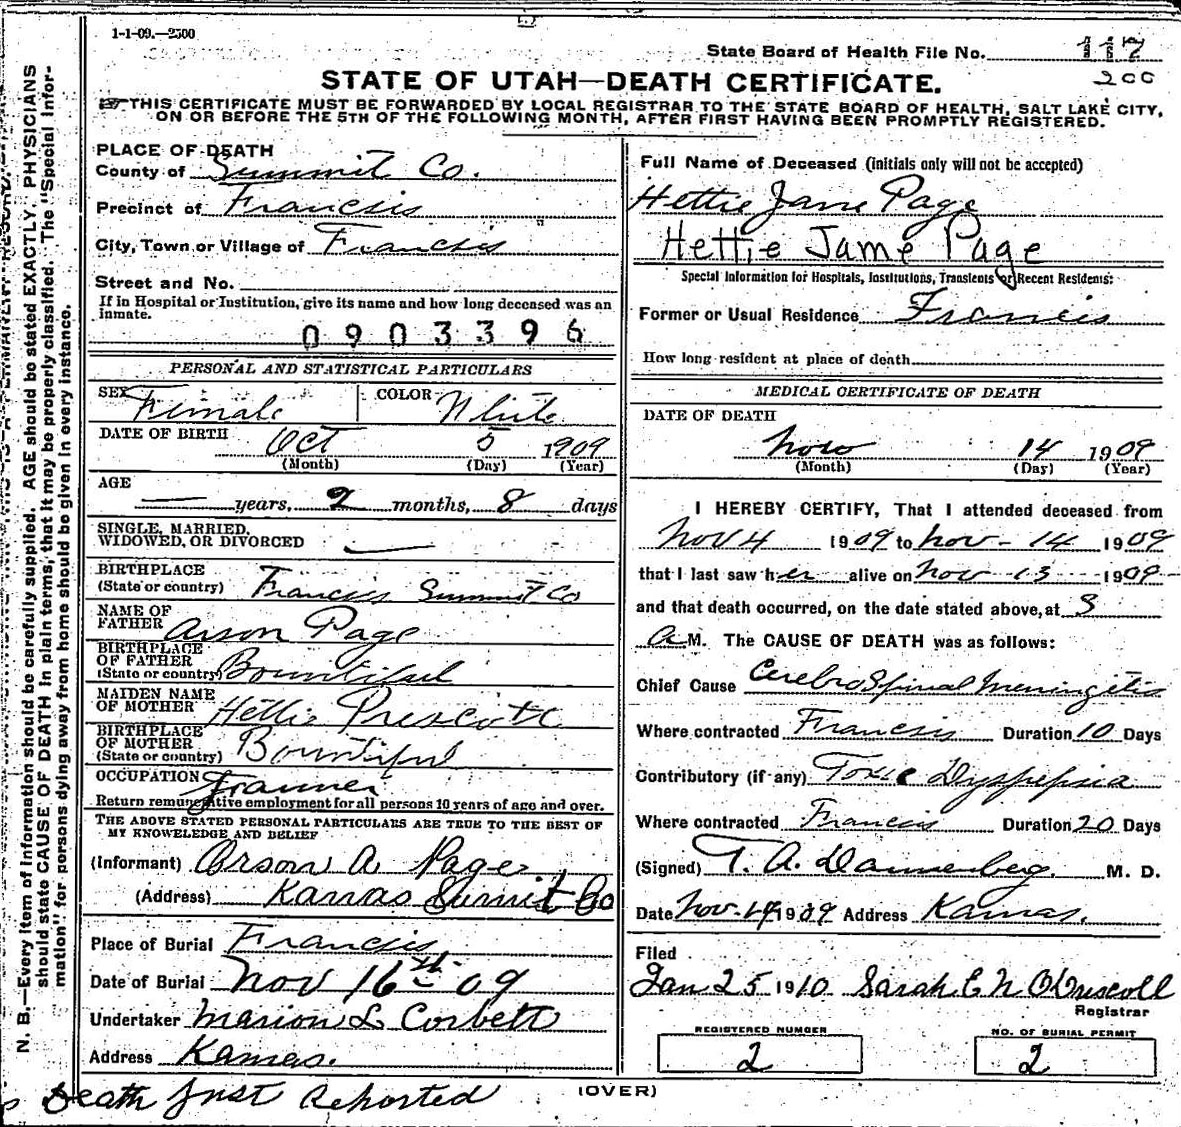 1-1-09.—2500
State Board of Health File No. 117
200
STATE OF UTAH—DEATH CERTIFICATE.
THIS CERTIFICATE MUST BE FORWARDED BY LOCAL REGISTRAR TO THE STATE BOARD OF HEALTH, SALT LAKE CITY,
ON OR BEFORE THE 5TH OF THE FOLLOWING MONTH, AFTER FIRST HAVING BEEN PROMPTLY REGISTERED.
PLACE OF DEATH
County of Summit Co.
Precinct of Francis
City, Town or Village of Francis
Street and No.
If in Hospital or Institution, give its name and how long deceased was an
inmate.
0903396
PERSONAL AND STATISTICAL PARTICULARS
SEX Female COLOR White
DATE OF BIRTH Oct 5 1909
(Month) (Day) (Year)
AGE
— years, 2 months, 8 days
SINGLE, MARRIED,
WIDOWED, OR DIVORCED —
BIRTHPLACE
(State or country) Francis Summit Co
NAME OF
FATHER Orson Page
BIRTHPLACE
OF FATHER
(State or country) Bountiful
MAIDEN NAME
OF MOTHER Hettie Prescott
BIRTHPLACE
OF MOTHER
(State or country) Bountiful
OCCUPATION Framner
Return remunerative employment for all persons 10 years of age and over.
THE ABOVE STATED PERSONAL PARTICULARS ARE TRUE TO THE BEST OF
MY KNOWLEDGE AND BELIEF
(Informant) Orson A Page
(Address) Kamas Summit Co
Place of Burial Francis
Date of Burial Nov 16th 09
Undertaker Marion L Corbett
Address Kamas.
Death Just Reported
Full Name of Deceased (initials only will not be accepted)
Hettie Jane Page
Hettie Jame Page
Special Information for Hospitals, Institutions, Transients or Recent Residents:
Former or Usual Residence Francis
How long resident at place of death
MEDICAL CERTIFICATE OF DEATH
DATE OF DEATH
Nov 14 1909
(Month) (Day) (Year)
I HEREBY CERTIFY, That I attended deceased from
Nov 4 1909 to Nov - 14 1909
that I last saw her alive on Nov 13 1909
and that death occurred, on the date stated above, at 3
a M. The CAUSE OF DEATH was as follows:
Chief Cause Cerebro Spinal Meningitis
Where contracted Francis Duration 10 Days
Contributory (if any) Toxic Dyspepsia
Where contracted Francis Duration 20 Days
(Signed) T. A. Dannenberg. M. D.
Date Nov. 14 1909 Address Kamas.
Filed
Jan 25 1910 Sarah E N O'Driscoll
Registrar
REGISTERED NUMBER
2
NO. OF BURIAL PERMIT
2
(OVER)
N. B.—Every item of information should be carefully supplied. AGE should be stated EXACTLY. PHYSICIANS
should state CAUSE OF DEATH in plain terms, that it may be properly classified. The "Special Infor-
mation" for persons dying away from home should be given in every instance.